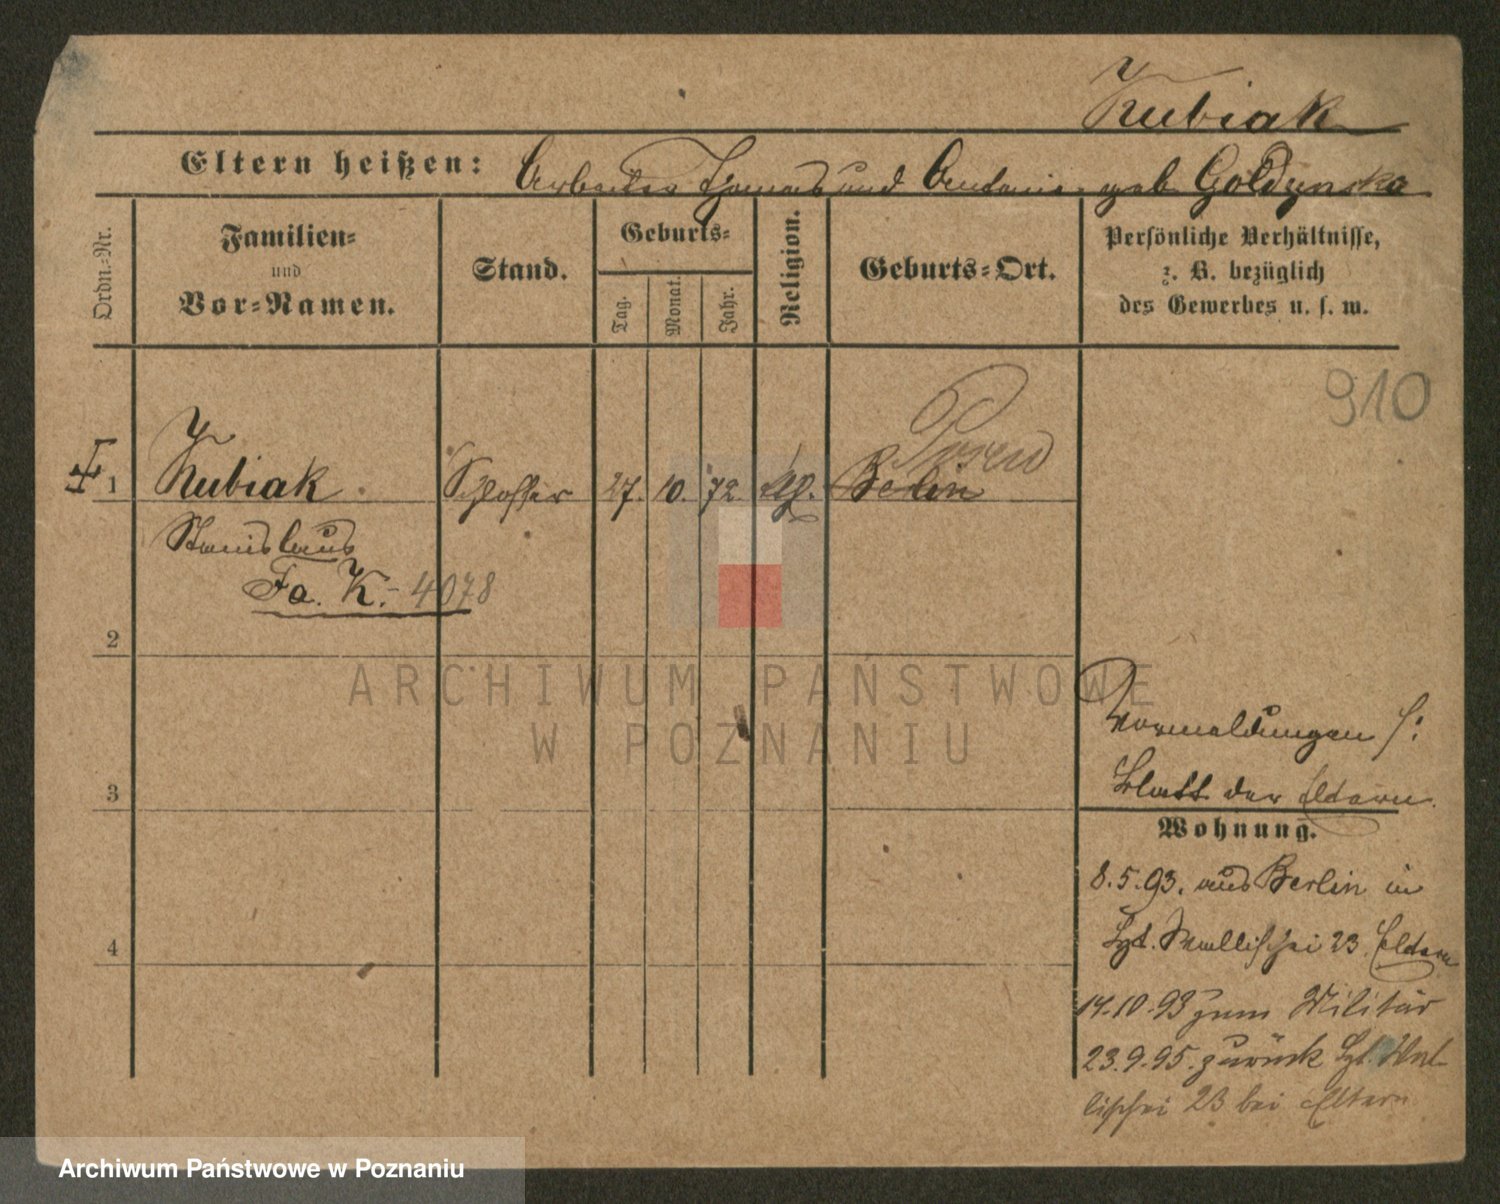 Kubiak
Eltern heißen: Arbeiter Thomas und Antonie geb Goldynska
Ordn.-Nr.
Familien-
und
Vor-Namen.
Stand.
Geburts-
Tag.
Monat.
Jahr.
Religion.
Geburts-Ort.
Persönliche Verhältnisse,
z. B. bezüglich
des Gewerbes u. s. w.
910
Posen
1 Kubiak Schlosser 27. 10. 72 kth. Berlin
Stanislaus
Fa. K. - 4078
2
3
4
Vormeldungen s:
Blatt der Eltern.
Wohnung.
8.5.93. aus Berlin in
Lgt. Wallischei 23 Eltern
14.10.93 zum Militär
23.9.95. zurück Lgt. Wal-
lischei 23 bei Eltern
ARCHIWUM PAŃSTWOWE
W POZNANIU
Archiwum Państwowe w Poznaniu